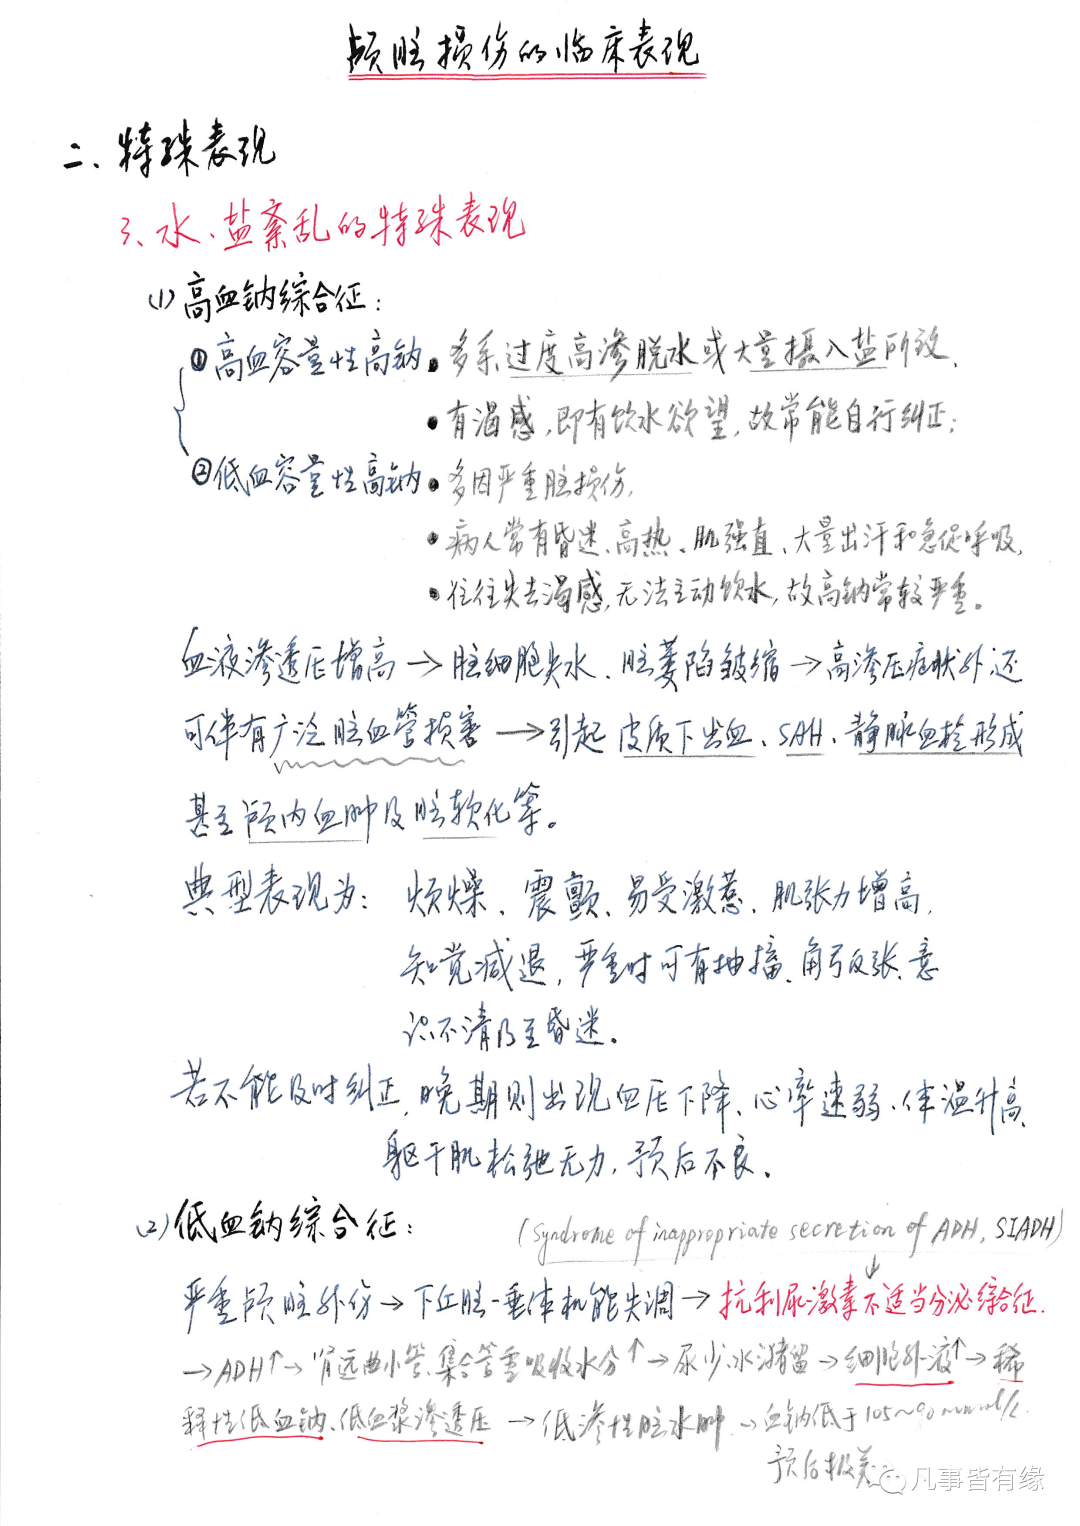 颅脑损伤的临床表现
二、特殊表现
3、水、盐紊乱的特殊表现
(1)高血钠综合征:
①高血容量性高钠 • 多系过度高渗脱水或大量摄入盐所致、
• 有渴感,即有饮水欲望,故常能自行纠正;
②低血容量性高钠 • 多因严重脑损伤,
• 病人常有昏迷、高热、肌强直、大量出汗和急促呼吸,
• 往往失去渴感,无法主动饮水,故高钠常较严重。
血液渗透压增高→脑细胞失水、脑萎陷皱缩→高渗压症状外,还
可伴有广泛脑血管损害→引起皮质下出血、SAH、静脉血栓形成
甚至颅内血肿及脑软化等。
典型表现为: 烦燥、震颤、易受激惹、肌张力增高,
知觉减退,严重时可有抽搐、角弓反张、意
识不清乃至昏迷。
若不能及时纠正,晚期则出现血压下降、心率速弱、体温升高、
躯干肌松弛无力,预后不良。
(2)低血钠综合征:
(Syndrome of inappropriate secretion of ADH, SIADH)
严重颅脑外伤→下丘脑-垂体机能失调→抗利尿激素不适当分泌综合征.
→ADH↑→肾远曲小管、集合管重吸收水分↑→尿少、水潴留→细胞外液↑→稀
释性低血钠、低血浆渗透压→低渗性脑水肿→血钠低于105~90mmol/L
预后极差
凡事皆有缘